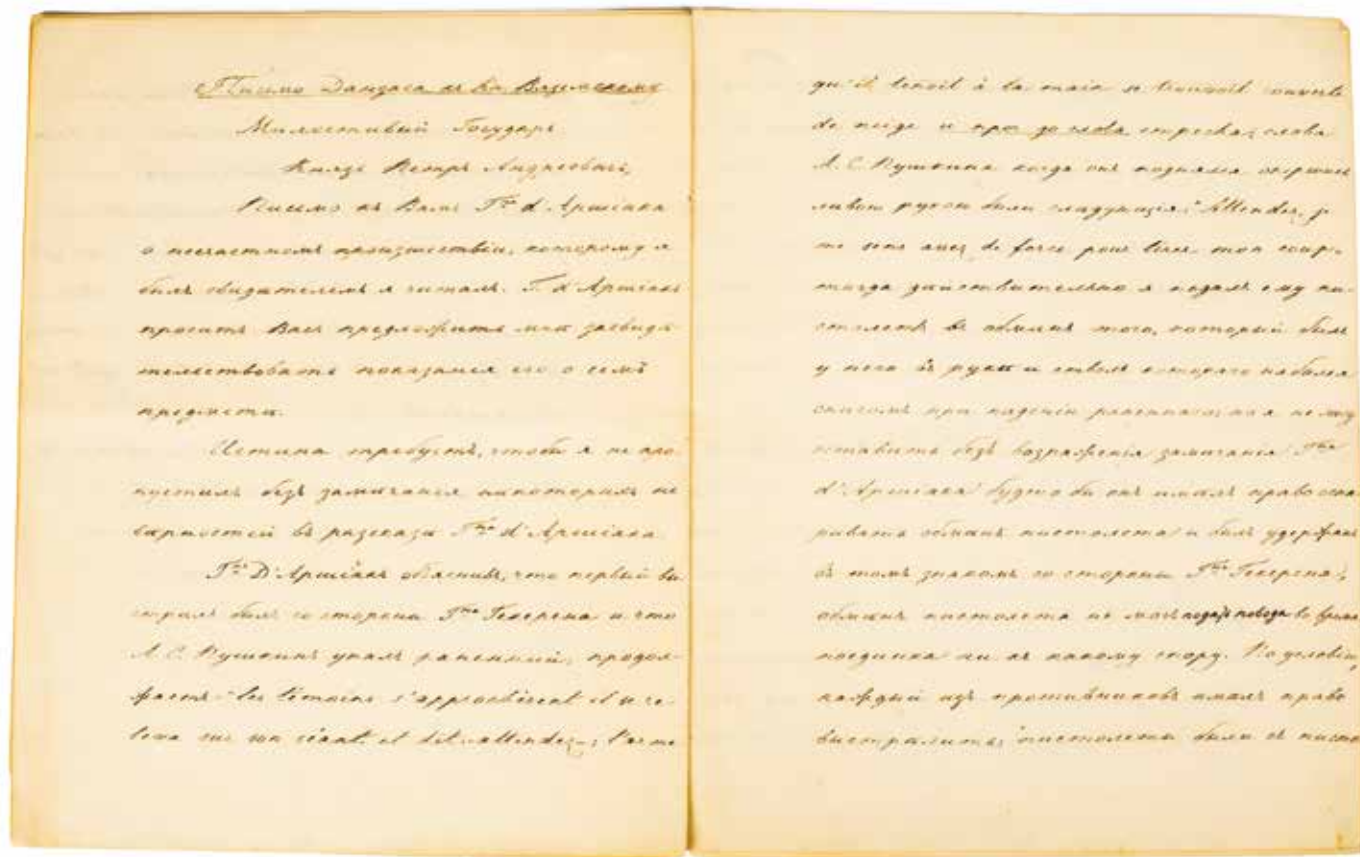 Письмо Данзаса къ Кн. Вяземскому
Милостивый Государь
Князь Петръ Андреевичъ,
Письмо къ Вамъ Гна д'Аршіака
о несчастномъ происшествіи, которому я
былъ свидетелемъ я читалъ. Г. д'Аршіакъ
проситъ Васъ предложить мне засвидѣ-
тельствовать показанія его о семъ
предмети.
Истина требуетъ, чтобы я не про-
пустилъ безъ замичанія никоторыхъ не-
верностей въ разскази Гна д'Аршіака.
Гнъ Д'Аршіакъ объяснивъ, что первый вы-
стрѣлъ былъ со стороны Гна Гекерена и что
А. С. Пушкинъ упалъ раненный, продол-
жаетъ: "les témoins s'approchèrent il se re-
leva sur son séant et dit: attendez; l'arme
qu'il tenoit à la main se trouvoit couverte
de neige
А. С. Пушкина когда онъ поднялся опершись
ливою рукою были слидующія: "Attendez, je
me sens assez de force pour tirer mon coup.
тогда дийствительно я подалъ ему пи-
столетъ въ обминъ того, который былъ
у него въ руки и стволъ котораго набился
снигомъ при паденіи раненнаго но я не могу
оставить безъ возраженія замичанія Гна
д'Аршіака будто бы онъ имилъ право оспа-
ривать обминъ пистолета и былъ удержанъ
въ томъ знакомъ со стороны Гна Гекерена;
обминъ пистолета не могъ подать повода во время
поединка ни къ какому спору. По условію,
каждый изъ противниковъ имилъ право
выстрилить; пистолеты были съ писто-